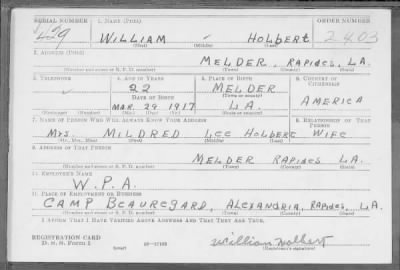 SERIAL NUMBER
1. NAME (Print)
ORDER NUMBER
459
WILLIAM - HOLBERT
2403
(First) (Middle) (Last)
2. ADDRESS (Print)
MELDER, RAPIDES, LA.
(Number and street or R. F. D. number) (Town) (County) (State)
3. TELEPHONE
4. AGE IN YEARS
5. PLACE OF BIRTH
6. COUNTRY OF CITIZENSHIP
22
MELDER
DATE OF BIRTH
(Town or county)
AMERICA
MAR. 29 1917
LA.
(Exchange) (Number)
(Mo.) (Day) (Yr.)
(State or country)
7. NAME OF PERSON WHO WILL ALWAYS KNOW YOUR ADDRESS
8. RELATIONSHIP OF THAT PERSON
MRS. MILDRED LEE HOLBERT WIFE
(Mr., Mrs., Miss) (First) (Middle) (Last)
9. ADDRESS OF THAT PERSON
MELDER RAPIDES LA.
(Number and street or R. F. D. number) (Town) (County) (State)
10. EMPLOYER'S NAME
W.P.A.
11. PLACE OF EMPLOYMENT OR BUSINESS
CAMP BEAUREGARD, ALEXANDRIA, RAPIDES, LA.
(Number and street or R. F. D. number) (Town) (County) (State)
I AFFIRM THAT I HAVE VERIFIED ABOVE ANSWERS AND THAT THEY ARE TRUE.
REGISTRATION CARD
D. S. S. FORM 1
(over)
William Holbert
(Registrant's signature)